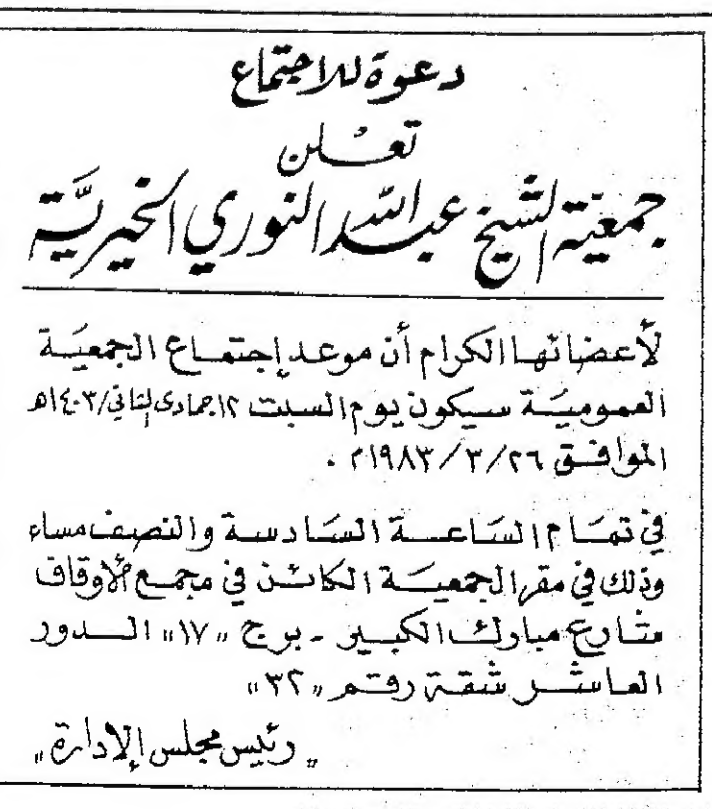 دعوة للاجتماع
تعلن
جمعية الشيخ عبد الله النوري الخيرية
لأعضائها الكرام أن موعد إجتماع الجمعية
العمومية سيكون يوم السبت ١٢ جمادى الثاني/١٤٠٣هـ
الموافق ٢٦/٣/١٩٨٣م .
في تمام الساعة السادسة والنصف مساء
وذلك في مقر الجمعية الكائن في مجمع الأوقاف
شارع مبارك الكبير - برج "١٧" الدور
العاشر شقة رقم "٣٢"
"رئيس مجلس الإدارة"